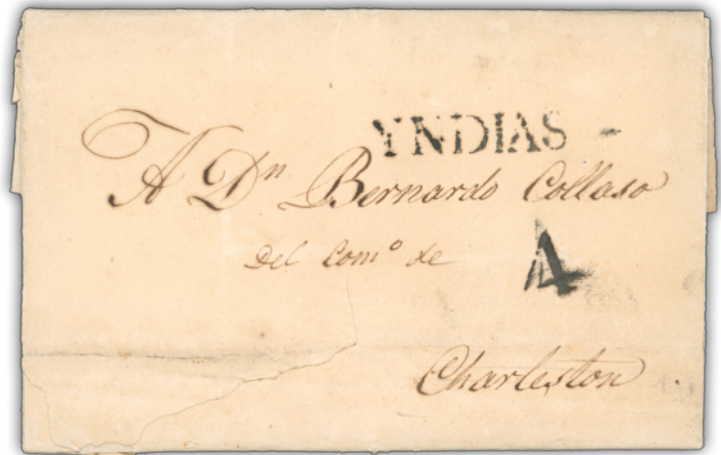 YNDIAS
A Dn Bernardo Collaso
Del Comº de
4
Charleston